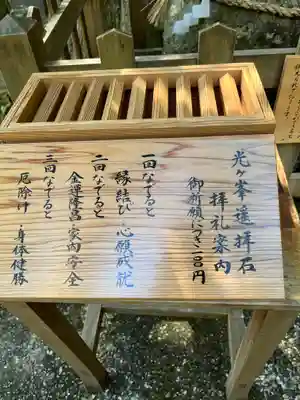 光ヶ峯遥拝石
拝礼案内
御祈願につき二百円
一回なでると
縁結び・心願成就
二回なでると
金運隆昌・家内安全
三回なでると
厄除け・身体健勝